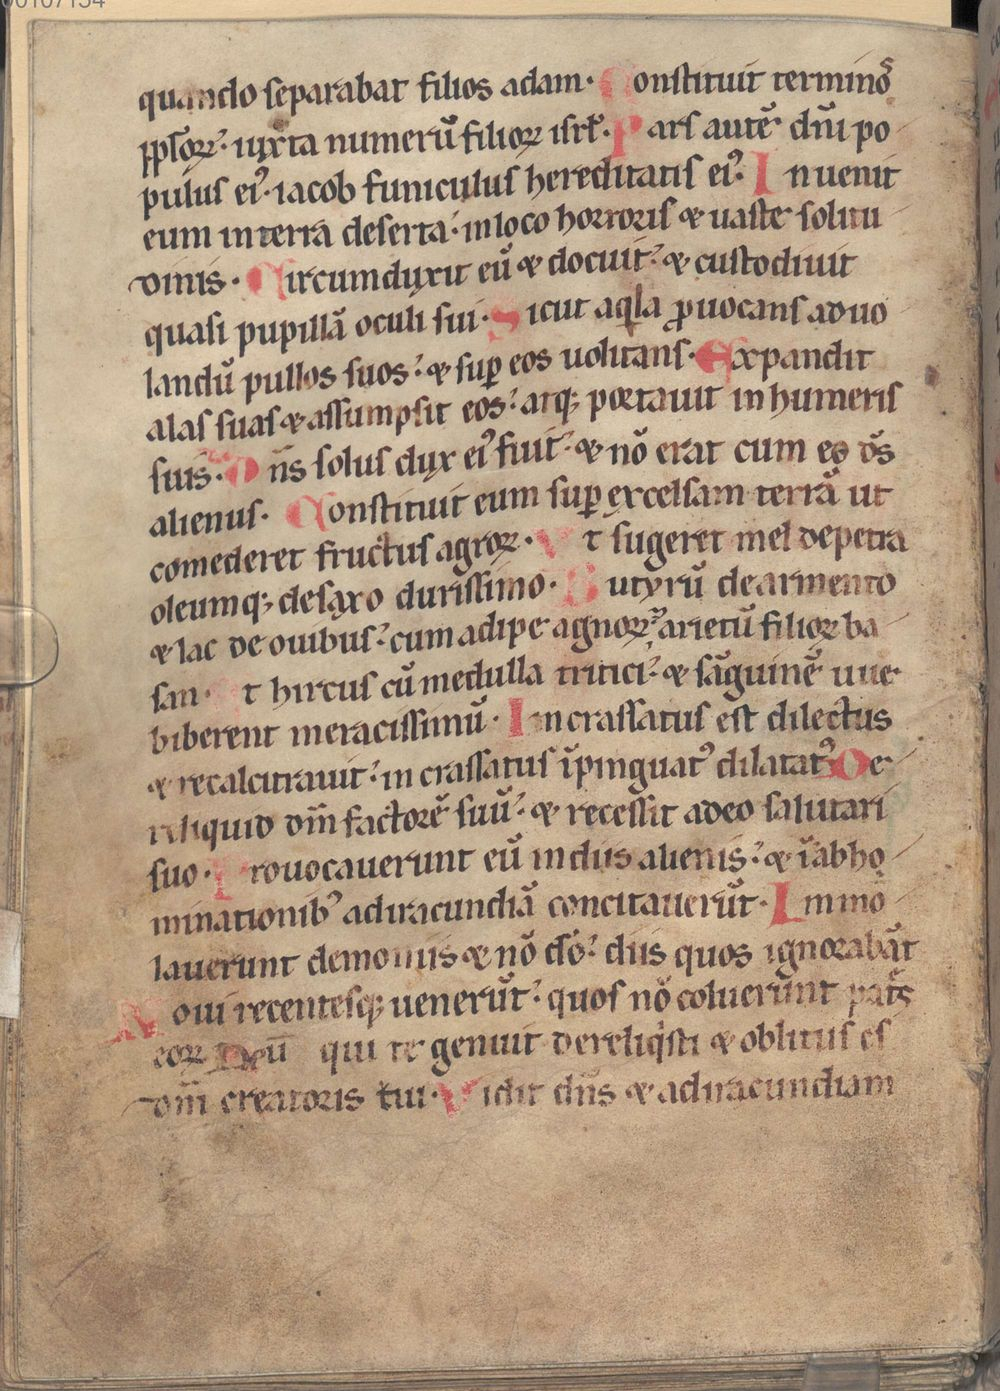 quando separabat filios adam· Constituit terminoˢ
ppl̄oꝝ· iuxta numerū filioꝝ isrl̄· Pars autē dn̄i po
pulus ei᾽· iacob funiculus hereditatis ei᾽· Inuenit
eum in terra deserta· in loco horroris & uaste solitu
dinis· Circumduxit eū & docuit· & custodiuit
quasi pupillā oculi sui· Sicut aqͥla ꝓuocans ad uo
landū pullos suos· & suꝑ eos uolitans· Expandit
alas suas & assumpsit eos· atqꝫ portauit in humeris
suis· Dn̄s solus dux ei᾽ fuit· & nō erat cum eo ds̄
alienus· Constituit eum suꝑ excelsam terrā ut
comederet fructus agroꝝ· Vt sugeret mel de petra
oleumqꝫ de saxo durissimo· Butyrū de armento
& lac de ouibus· cum adipe agnoꝝ· arietū filioꝝ ba
san· Et hircus cū medulla tritici· & sāguinē uue
biberent meracissimū· Incrassatus est dilectus
& recalcitrauit· incrassatus īpinguat᾽ dilatat᾽· De
reliquid dm̄ factorē suū· & recessit a deo salutari
suo· Prouocauerunt eū in diis alienis· & ī abho
minationib᾽ ad iracundiā concitauerūt· Immo
lauerunt demoniis & nō dō· diis quos ignorabāt
Noui recentesqꝫ uenerūt· quos nō coluerūnt pat̄s
eoꝝ Deū qui te genuit dereliqͥsti & oblitus es
dm̄ creatoris tui· Vidit dn̄s & ad iracundiam